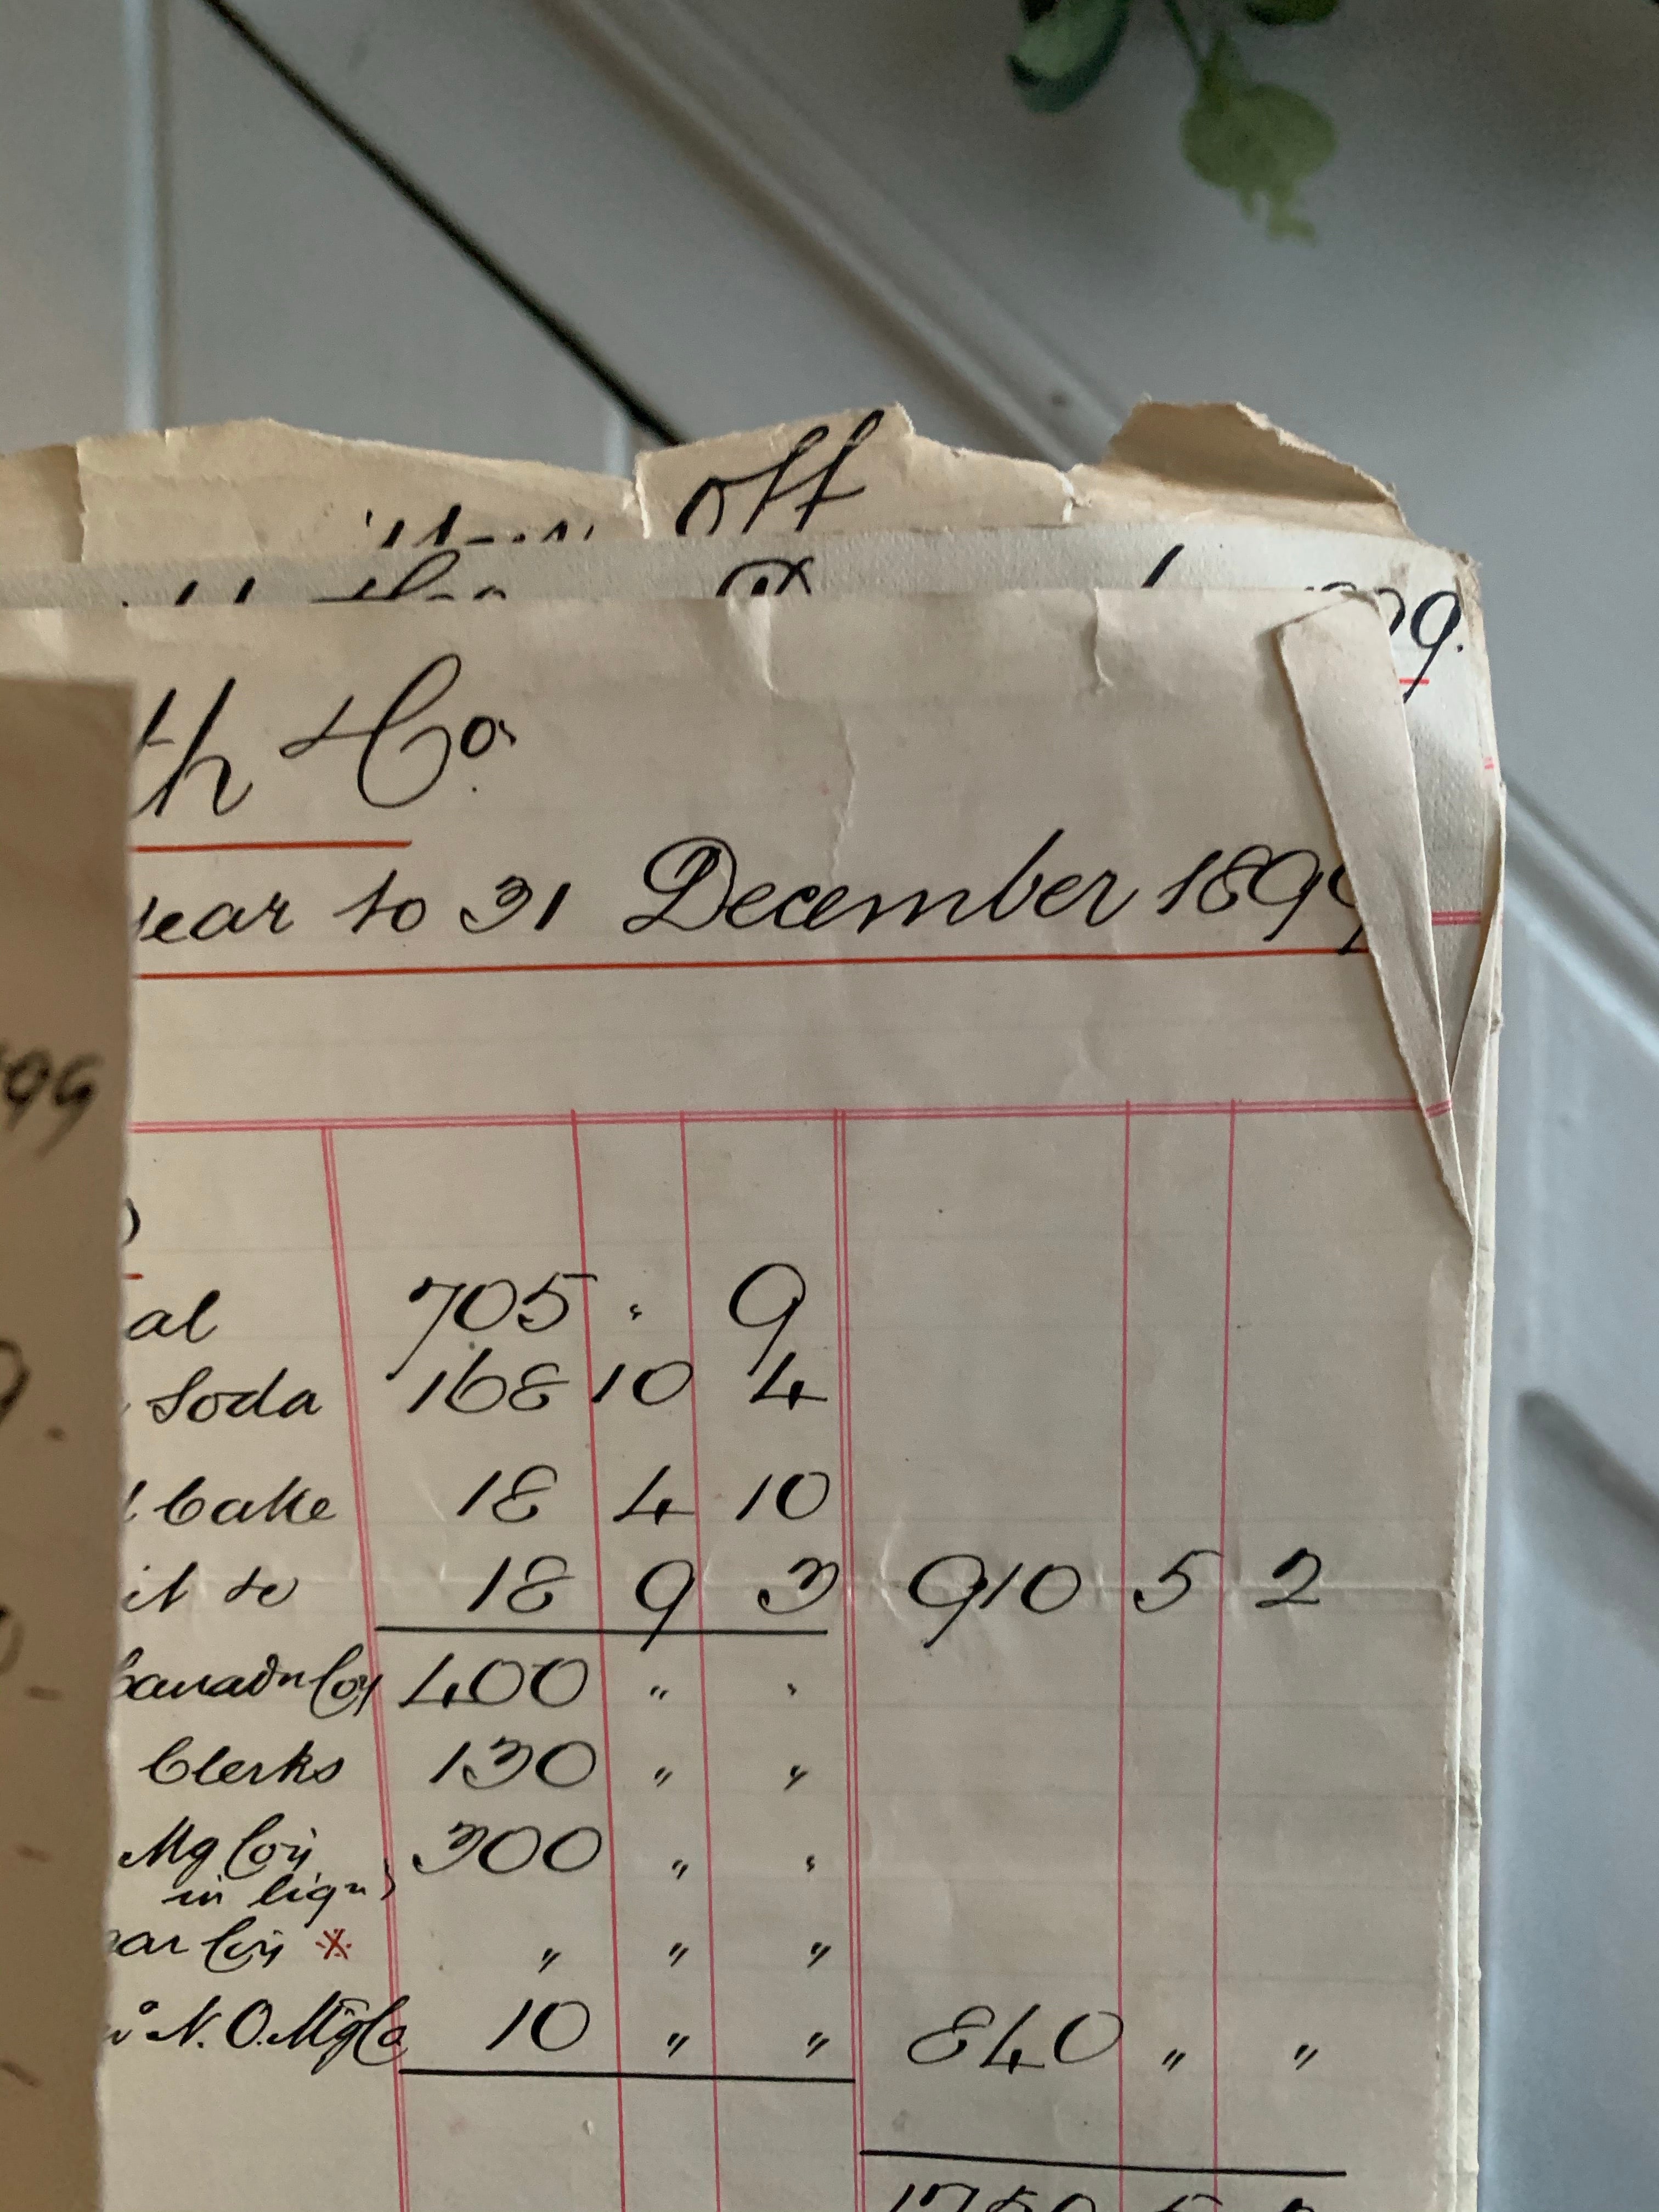 off
99.
th & Co.
year to 31 December 1899
99
al 705 " 9
Soda 168 10 4
Cake 18 4 10
it &c 18 9 3 910 5 2
Canadn Coy 400 " "
Clerks 130 " "
Mg Coy 300 " "
in liqn
ar Coy * " " "
N.O. Mg Co 10 " " 840 " "
1750 5 2